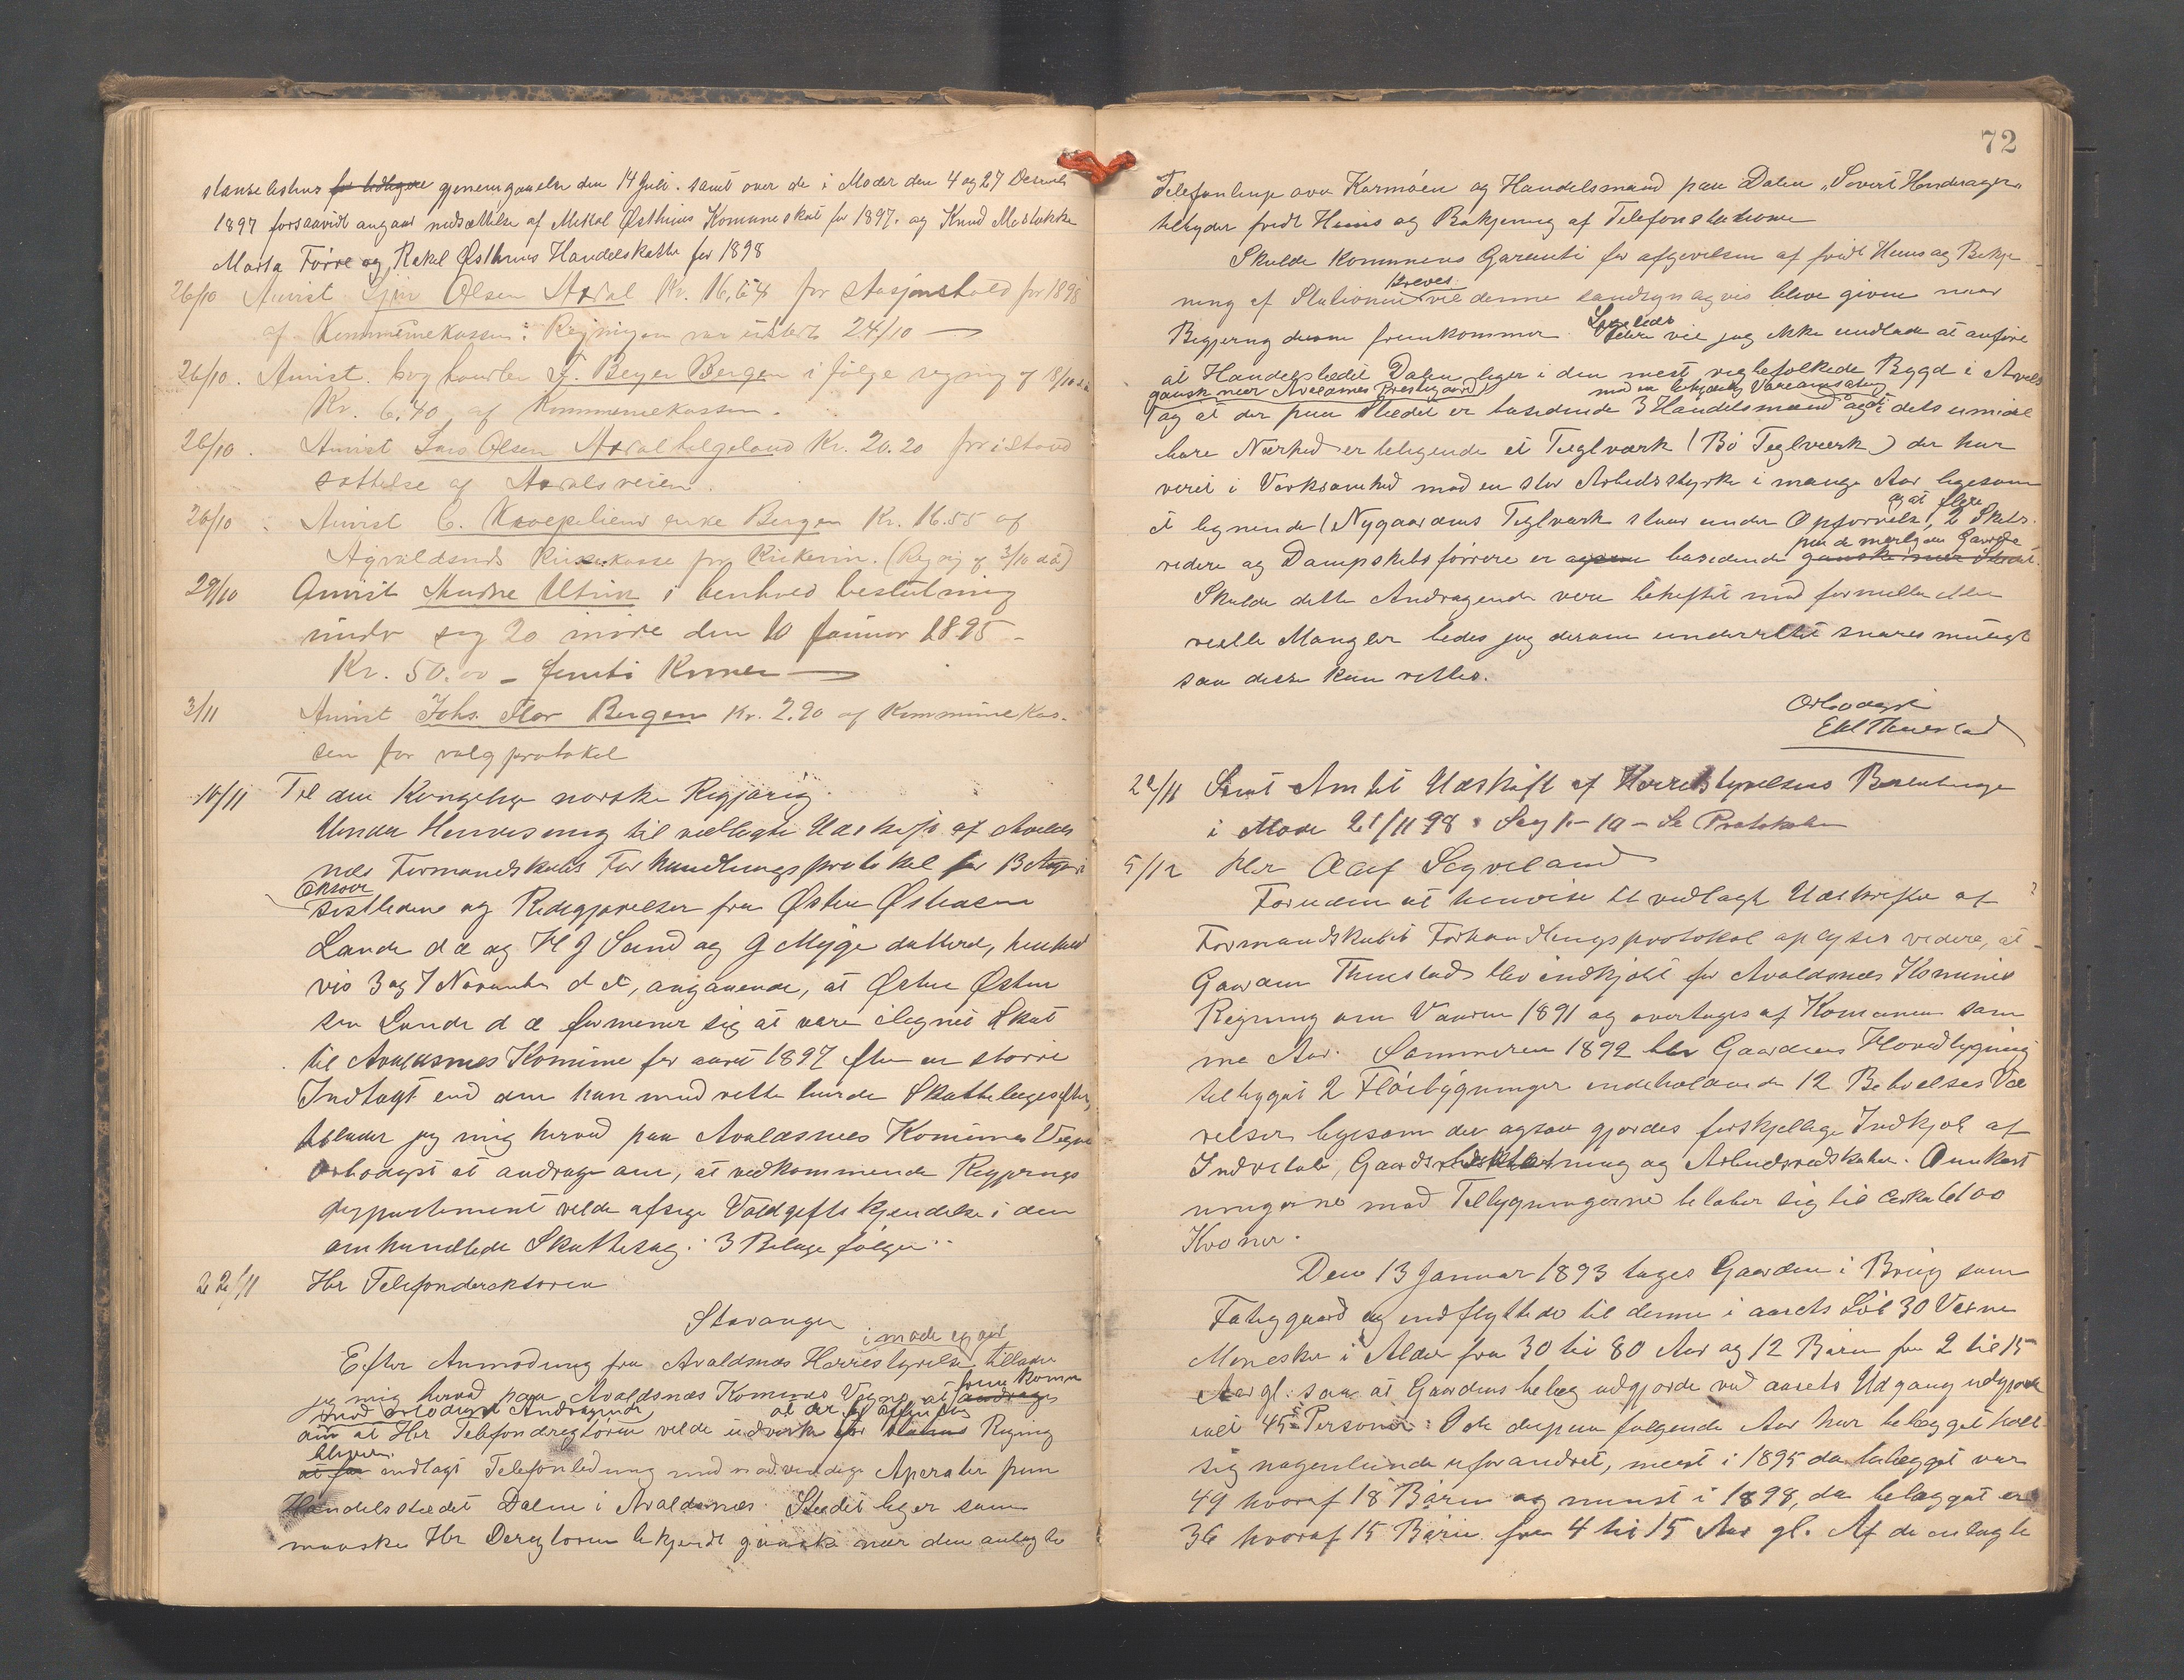 gjennemgaaelse den 14 Juli. samt over de i Møder den 4 og 27
1897 forsaavidt angaar nedsættelse af Mikal Østhuus Komuneskat for 1897. og Knud
Marta Førre og Rakel Østhuus Handelskatte for 1898
26/10 Anvist Olsen Kr. 16,64 for for 1898
af Kommunekassen: Regningen 24/10
26/10. Anvist. boghandler F. Beyer Bergen i følge regning af 18/10
Kr. 6.40 af Kommunekassen.
26/10. Anvist Lars Olsen Kr. 20.20 for istand
sættelse af
26/10 Anvist C. enke Bergen Kr. 16.55 af
kirkekasse for Kirkevin. (Regning af 3/10 d.å)
29/10 Anvist i henhold beslutning
under sag 20 møde den 10 Januar 1895 -
Kr. 50.00 - femti Kroner
3/11 Anvist Johs. Flor Bergen Kr. 2.90 af Kommunekas-
sen for valgprotokol
10/11 Til den Kongelige norske Regjering.
Under Henvisning til vedlagte Udskrift af Avalds
nes Formandskabs Forhandlingsprotokol for 13 August
sistledne og Redegjørelser fra Østen Østensen
Lande d æ og H J Sund og G Myge daterede, henhold
vis 3 og 7 November d A, angaaende, at Østen Østen
sen Lande d æ formener sig at være ilignet Skat
til Avaldsnes Komune for aaret 1897 efter en større
Indtægt end den han med rette burde Skattelægges efter,
tillader jeg mig herved paa Avaldsnes Komunes Vegne
ærbødigst at andrage om, at vedkommende Regjerings
departement vilde afsige Voldgifts kjendelse i den
omhandlede Skattesag. 3 Bilage følger
22/11 Hr Telefondirektøren
Stavanger
i møde
Efter Anmodning fra Avaldsnes Herredstyrelse tillader
jeg mig herved paa Avaldsnes Komunes Vegne at andrage
med ærbødigst Andragende
om at Hr Telefondirektøren vilde udvirke for Statens Regning
bliver
at faa indlagt Telefonledning med nødvendige Aperater paa
Handelsstædet Dalen i Avaldsnes. Stædet liger som
maaske Hr Direktøren bekjendt ganske nær den anlagte
72
Telefonlinje over Karmøen og Handelsmand paa Dalen
tilbyder fridt Huus og Betjening af Telefonstationen
Skulde Komunens Garanti for afgivelsen af fridt Huus og Betje
kræves
ning af Stationen vil denne sandsynligvis blive given naar
Begjæring derom fremkommer vil jeg ikke undlade at anføre
at Handelsstædet Dalen liger i den mest vegbefolkede Bygd i
ganske nær Avaldsnes Prestegaard
og at der paa Stædet er bosiddende 3 Handelsmænd og i dets umidel
bare Nærhed er beligende et Teglværk (Bø Teglværk) der har
været i Verksomhed med en stor Arbeidsstyrke i mange Aar ligesom
og at flere
et lignende (Nygaardens Teglværk staar under Opførelse, 2 Skibs
redere og Dampskibsførere er bosiddende ganske nær Stædet
Skulde dette Andragende være beheftet med formelle eller
reelle Mangler bedes jeg derom underrettet snarest muligt
saa disse kan rettes.
Ærbødigst
22/11 Sendt Amtet Udskrift af Herredstyrelsens Beslutninger
i Møde 21/11 98 Sag 1 - 10 - Se Protokolen
5/12 Hr Oluf Segveland
Foruden at henvise til vedlagt Udskrifter af
Formandskabets Forhandlingsprotokol oplyses videre, at
Gaarden Thuestad blev indkjøbt for Avaldsnes Komunes
Regning om Vaaren 1891 og overtoges af Komunen sam
me Aar. Sommeren 1892 blev Gaardens Hovedbygning
tilbygget 2 Fløibygninger indeholdende 12 Beboelses Væ
relser ligesom der ogsaa gjordes forskjellige Indkjøb af
Indventar, Gaards og Arbeidsredskaber. Omkost
ningerne med Tilbygningerne beløber sig til
Kroner.
Den 13 Januar 1893 toges Gaarden i Brug som
Fattiggaard og indflyttede til denne i aarets Løb 30 Voxne
Mennesker i Alder fra 30 til 80 Aar og 12 Børn fra 2 til 15
Aar gl. saa at Gaardens belæg udgjorde ved aarets Udgang
ialt 45 Personer. I de derpaa følgende Aar har belægget holt
sig nogenlunde uforandret, mest i 1895 da belægget var
49 hvoraf 18 Børn og minst i 1898, da belægget er
36 hvoraf 15 Børn fra 4 til 15 Aar gl. Af de anlagte